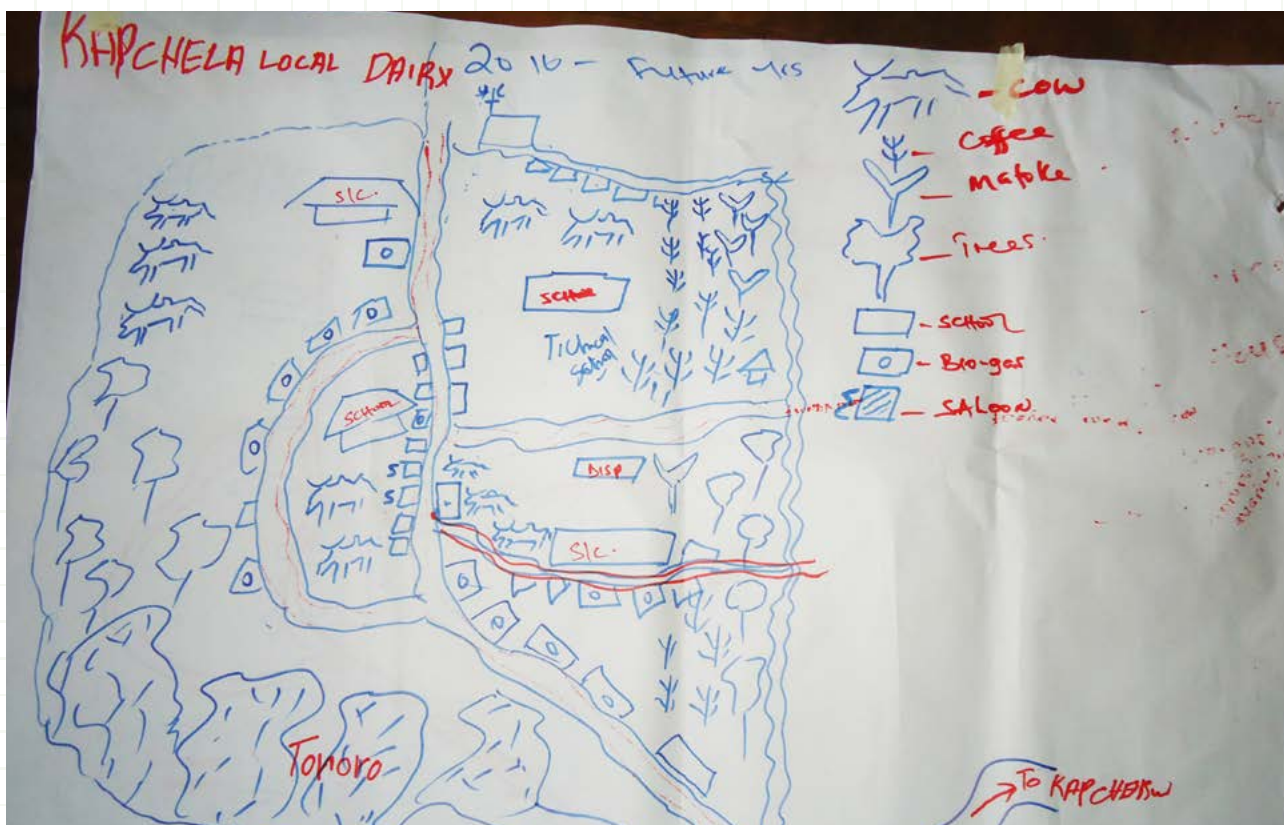 KAPCHELA LOCAL DAIRY 2010 - Future yrs
- COW
- Coffee
- Matoke
- Trees.
- SCHOOL
- Bio-gas
S - SALOON
S/C.
SCHOOL
SCHOOL
DISP
S
S
S/C.
Tororo
To KAPCHERW